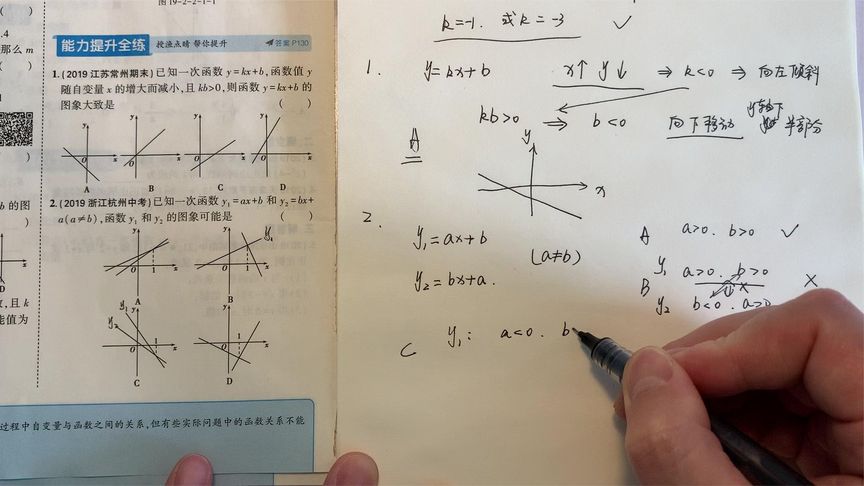 图19-2-2-1-1
( )
.4
那么m
( )
)
b的图
)
D
数,且k
能值为
能力提升全练 投渔点睛 帮你提升 答案P130
1.(2019江苏常州期末)已知一次函数y=kx+b,函数值y
随自变量x的增大而减小,且kb>0,则函数y=kx+b的
图象大致是 ( )
y y y y
0 x 0 x 0 x 0 x
A B C D
2.(2019浙江杭州中考)已知一次函数y₁=ax+b和y₂=bx+
a(a≠b),函数y₁和y₂的图象可能是 ( )
y y y₁
0 1 x 0 1 x
A B
y₁ y y
y₂
0 1 x 0 1 x
C D
过程中自变量与函数之间的关系,但有些实际问题中的函数关系不能
k=-1. 或k=-3 ✓
1. y=kx+b x↑ y↓ ⇒ k<0 ⇒ 向左倾斜
kb>0 ⇒ b<0 向下移动 y轴下半部分
A
y
x
2. y₁=ax+b (a≠b) A a>0. b>0 ✓
y₂=bx+a. B y₁ a>0. b>0 ×
y₂ b<0. a>0
C y₁: a<0. b